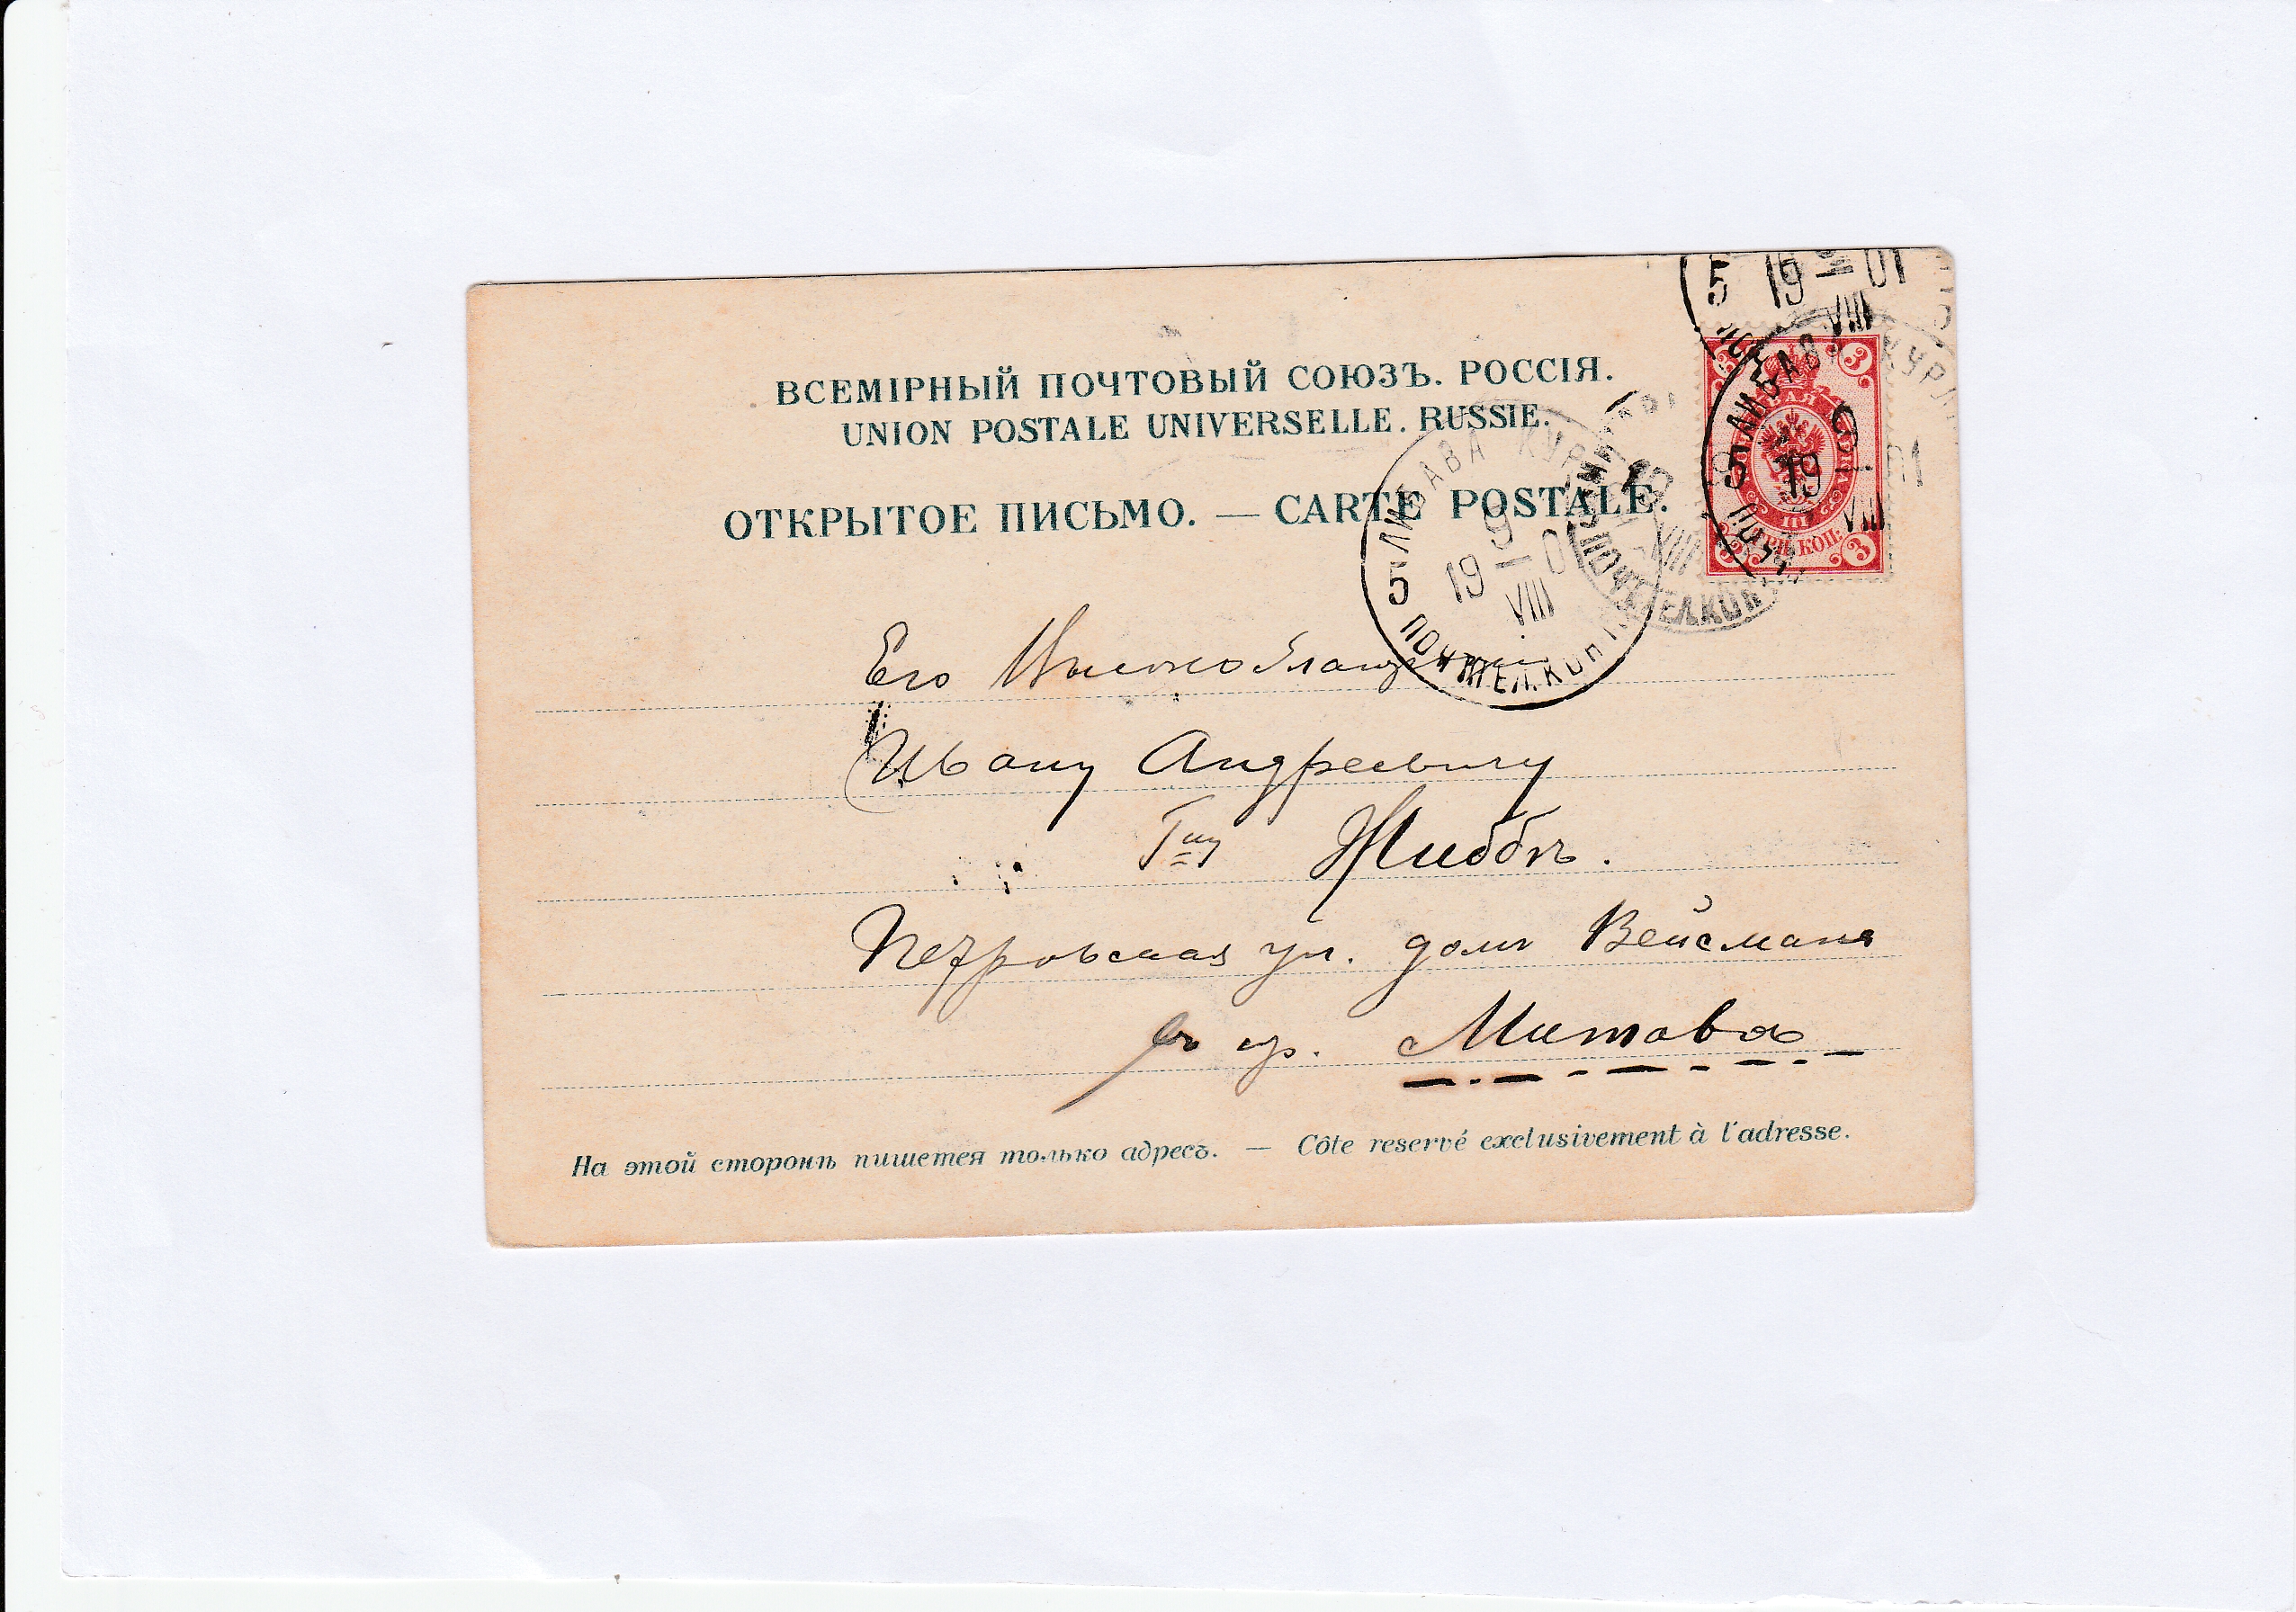 ВСЕМІРНЫЙ ПОЧТОВЫЙ СОЮЗЪ. РОССІЯ.
UNION POSTALE UNIVERSELLE. RUSSIE.
ОТКРЫТОЕ ПИСЬМО. — CARTE POSTALE.
5 19 01 VIII
ЛИБАВА КУРЛ
5 19 9 01 VIII
ЛИБАВА КУР
5 19 9 01 VIII
ПОЧ ТЕЛ. КОН
ПОЧ ТЕЛ. КОН
3 3
КОП.
3 3
Его Высокоблагородию
Ивану Андреевичу
Гну
Петровская ул. домъ Вейсмана
въ гор. Митавѣ
На этой сторонѣ пишется только адресъ. — Côte reservé exclusivement à l'adresse.